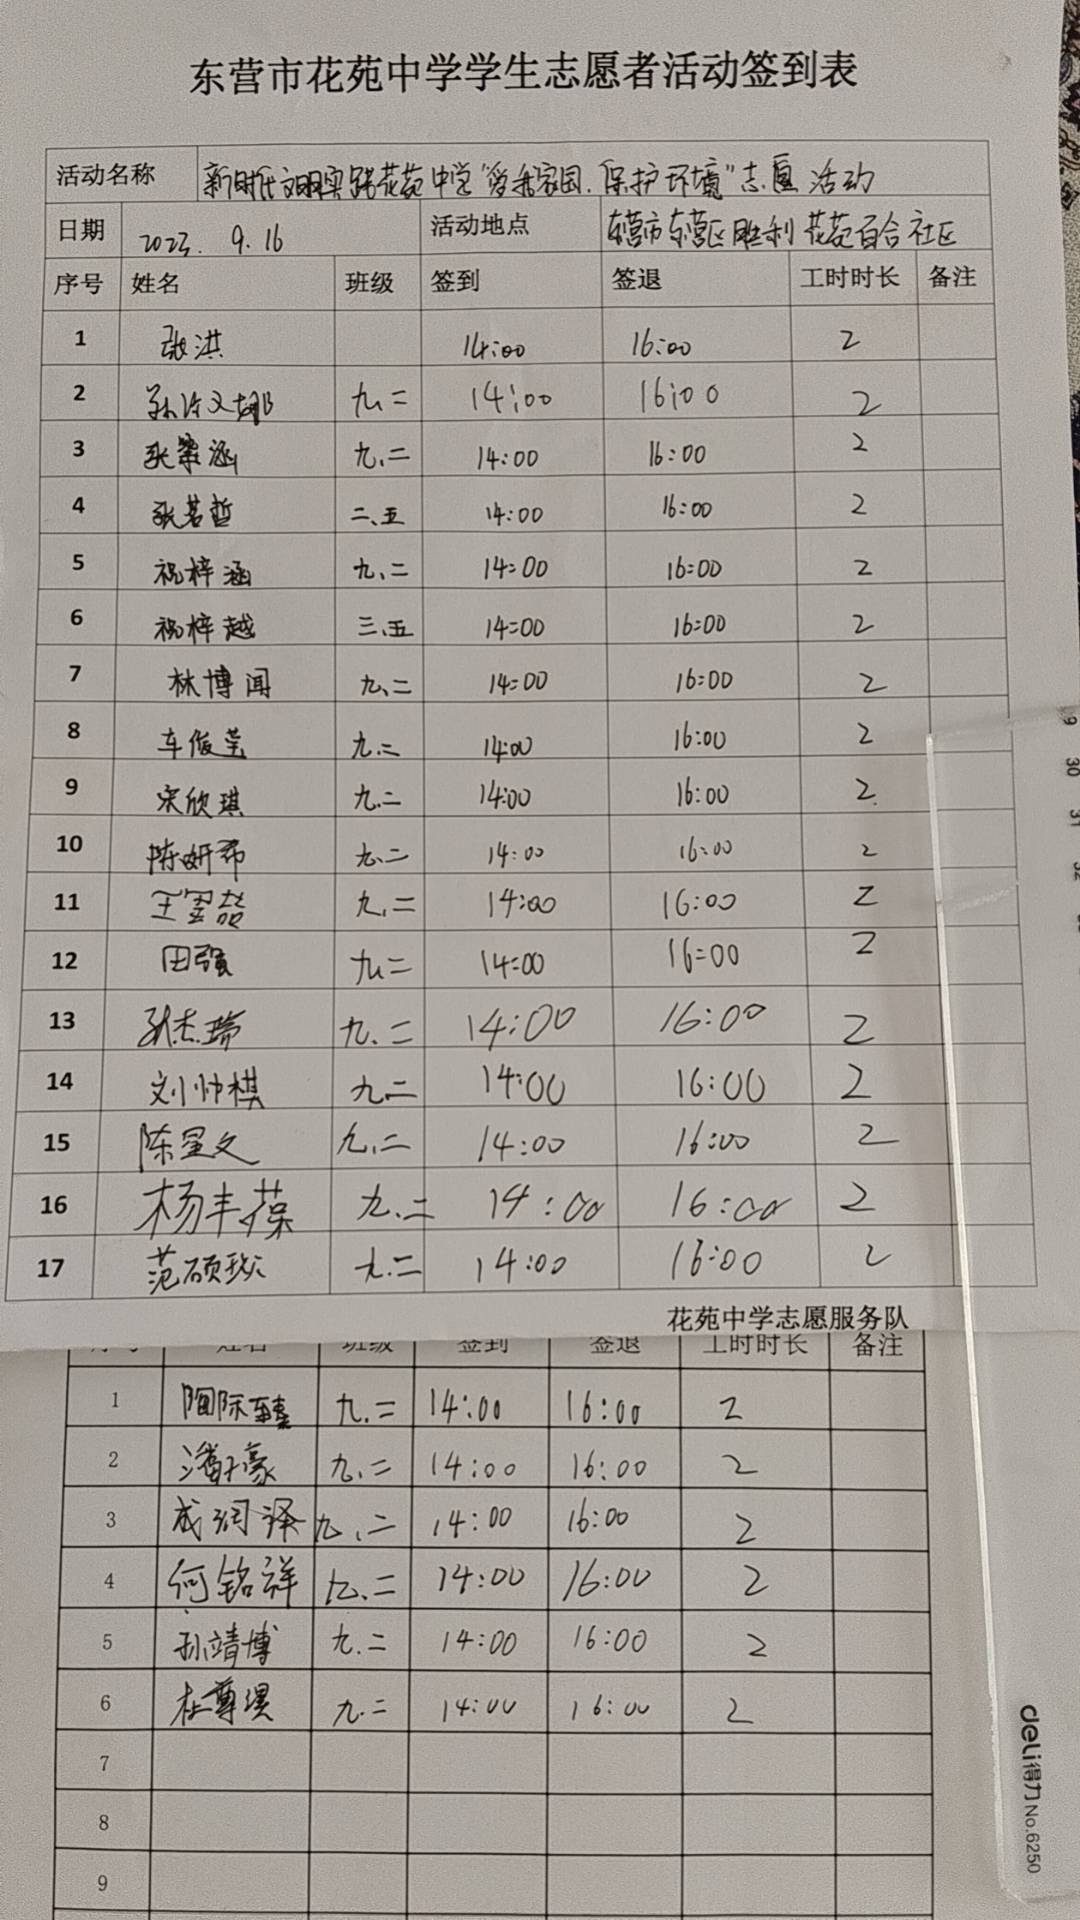 东营市花苑中学学生志愿者活动签到表
活动名称 新时代文明实践花苑中学“爱我家园.保护环境”志愿活动
日期 2023. 9.16 活动地点 东营市东营区胜利花苑百合社区
序号 姓名 班级 签到 签退 工时时长 备注
1 张洪 14:00 16:00 2
2 孙许文娜 九二 14:00 16:00 2
3 张 涵 九.二 14:00 16:00 2
4 张茗哲 二、五 14:00 16:00 2
5 祝梓涵 九、二 14:00 16:00 2
6 祝梓越 三、五 14:00 16:00 2
7 林博闻 九、二 14:00 16:00 2
8 车俊莹 九.二 14:00 16:00 2
9 宋欣琪 九.二 14:00 16:00 2
10 陈妍希 九.二 14:00 16:00 2
11 王 喆 九.二 14:00 16:00 2
12 田强 九二 14:00 16:00 2
13 杰瑞 九.二 14:00 16:00 2
14 刘帅棋 九.二 14:00 16:00 2
15 陈星文 九.二 14:00 16:00 2
16 杨丰葆 九.二 14:00 16:00 2
17 范硕 九.二 14:00 16:00 2
花苑中学志愿服务队
序号 姓名 班级 签到 签退 工时时长 备注
1 九.二 14:00 16:00 2
2 潘子豪 九.二 14:00 16:00 2
3 成润泽 九.二 14:00 16:00 2
4 何铭祥 九.二 14:00 16:00 2
5 孙靖博 九.二 14:00 16:00 2
6 杜尊 九.二 14:00 16:00 2
7
8
9
30
31
32
deli得力 No.6250